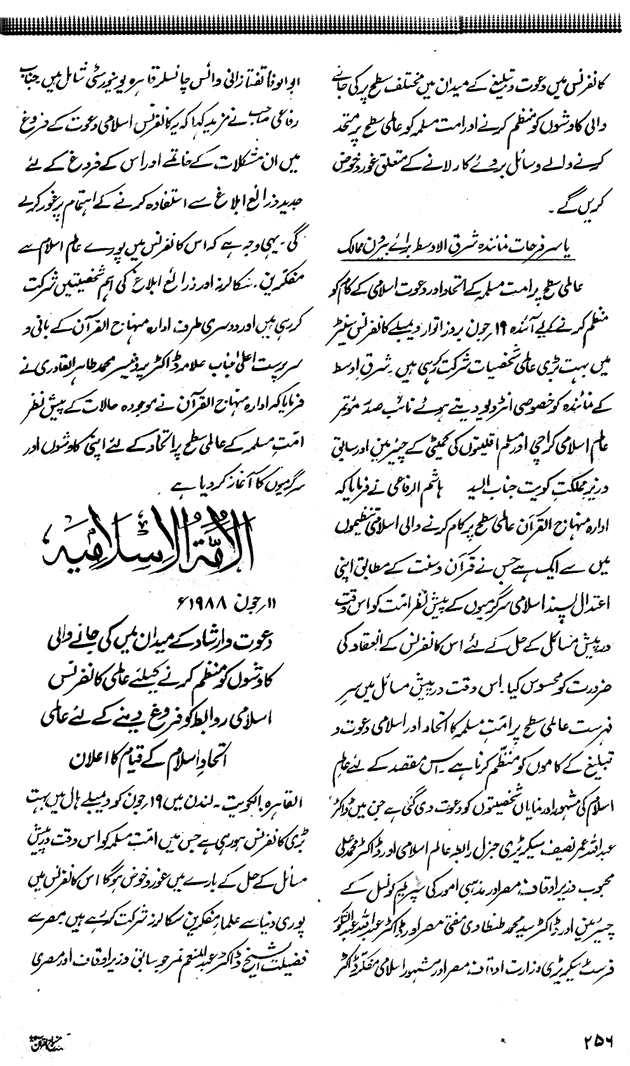 کانفرنس میں دعوت و تبلیغ کے میدان میں مختلف سطح پر کی جانے
والی کاوشوں کو منظم کرنے اور امت مسلمہ کو عالمی سطح پر متحد
کرنے والے وسائل بروئے کار لانے کے متعلق غور و خوض
کریں گے۔
یاسر فرحات نمائندہ شرق الاوسط برائے بیرون ممالک
عالمی سطح پر امت مسلمہ کے اتحاد اور دعوت اسلامی کے کام کو
منظم کرنے کے لیے آئندہ ۱۹ جون بروز اتوار ویمبلے کانفرنس سنٹر
میں بہت بڑی عالمی شخصیات شرکت کر رہی ہیں۔ شرق اوسط
کے نمائندہ کو خصوصی انٹرویو دیتے ہوئے نائب صدر موتمر
عالم اسلامی کراچی اور مسلم اقلیتوں کی کمیٹی کے چیئرمین اور سابق
وزیر مملکت کویت جناب السید ہاشم الرفاعی نے فرمایا کہ
ادارہ منہاج القرآن عالمی سطح پر کام کرنے والی اسلامی تنظیموں
میں سے ایک ہے جس نے قرآن و سنت کے مطابق اپنی
اعتدال پسند اسلامی سرگرمیوں کے پیش نظر امت کو اس وقت
درپیش مسائل کے حل کے لئے اس کانفرنس کے انعقاد کی
ضرورت کو محسوس کیا۔ اس وقت درپیش مسائل میں سر
فہرست عالمی سطح پر امت مسلمہ کا اتحاد اور اسلامی دعوت و
تبلیغ کے کاموں کو منظم کرنا ہے۔ اس مقصد کے لئے عالم
اسلام کی مشہور اور نمایاں شخصیتوں کو دعوت دی گئی ہے جن میں ڈاکٹر
عبداللہ عمر نصیف سیکریٹری جنرل رابطہ عالم اسلامی اور ڈاکٹر محمد علی
محجوب وزیر اوقاف مصر اور مذہبی امور کی سپریم کونسل کے
چیئرمین اور ڈاکٹر سید محمد طنطاوی مفتی مصر اور ڈاکٹر عبداللہ عبدالشکور
فرسٹ سیکریٹری وزارت اوقاف مصر اور مشہور اسلامی مفکر ڈاکٹر
ابوالوفا تفتازانی وائس چانسلر قاہرہ یونیورسٹی شامل ہیں جناب
رفاعی صاحب نے مزید کہا کہ یہ کانفرنس اسلامی دعوت کے فروغ
میں ان مشکلات کے خاتمے اور اس کے فروغ کے لئے
جدید ذرائع ابلاغ سے استفادہ کرنے کے اہتمام پر غور کرے
گی۔ یہی وجہ ہے کہ اس کانفرنس میں پورے عالم اسلام سے
مفکرین، سکالرز اور ذرائع ابلاغ کی اہم شخصیتیں شرکت
کر رہی ہیں اور دوسری طرف ادارہ منہاج القرآن کے بانی و
سرپرست اعلیٰ جناب علامہ ڈاکٹر پروفیسر محمد طاہر القادری نے
فرمایا کہ ادارہ منہاج القرآن نے موجودہ حالات کے پیش نظر
امت مسلمہ کے عالمی سطح پر اتحاد کے لئے اپنی کاوشوں اور
سرگرمیوں کا آغاز کر دیا ہے
الامۃ الاسلامیہ
۱۱ جون ۱۹۸۸ء
دعوت و ارشاد کے میدان میں کی جانے والی
کاوشوں کو منظم کرنے کیلئے عالمی کانفرنس
اسلامی روابط کو فروغ دینے کے لئے عالمی
اتحاد اسلام کے قیام کا اعلان
القاھرہ الکویت۔ لندن میں ۱۹ جون کو ویمبلے ہال میں بہت
بڑی کانفرنس ہو رہی ہے جس میں امت مسلمہ کو اس وقت درپیش
مسائل کے حل کے بارے میں غور و خوض ہوگا اس کانفرنس میں
پوری دنیا سے علما مفکرین سکالرز شرکت کر رہے ہیں مصر سے
فضیلت الشیخ ڈاکٹر عبدالمنعم نمر جو سابق وزیر اوقاف اور مصری
۲۵۶